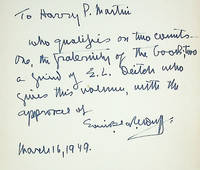 To Harry P. Martin
who qualifies on two counts -
One, the fraternity of the book; two
a friend of E. L. Deitch who
gives this volume, with the
approval of
March 16, 1949.